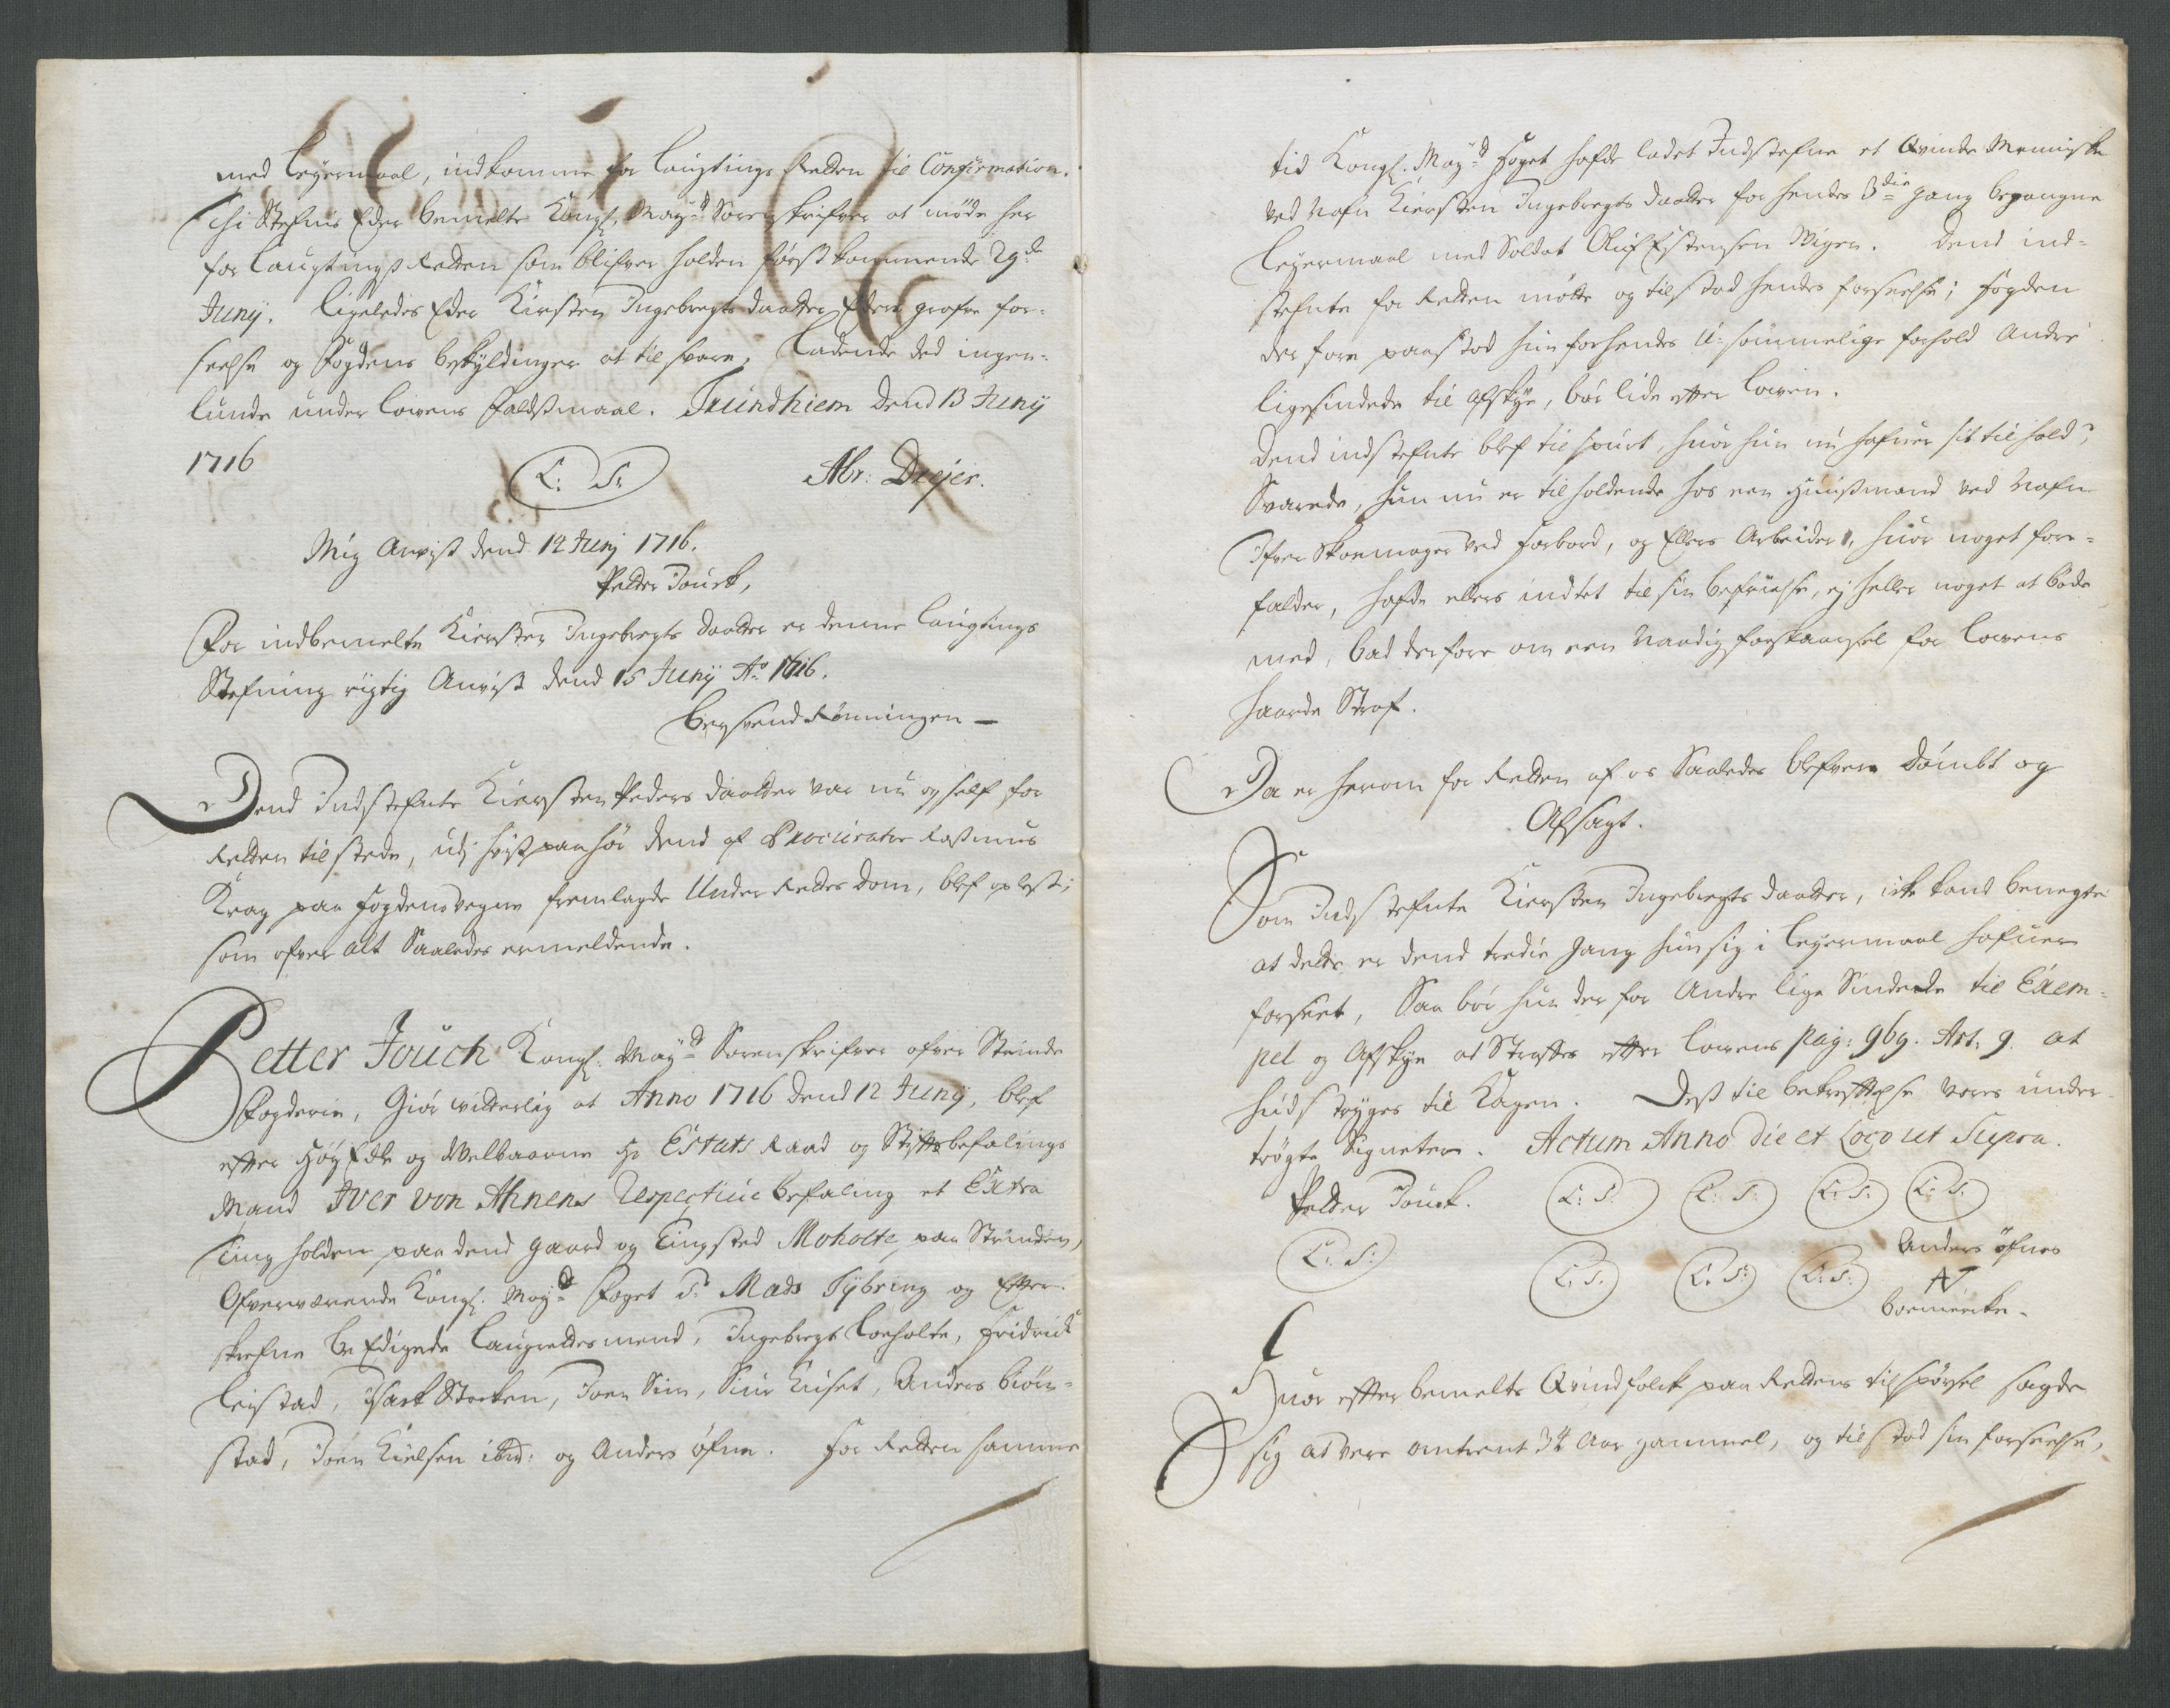 med Leyermaal, indkomme for Laugtings Retten til Confirmation.
Thi Stefnis Eder bemelte Kongl. May.ts Sorenskrifver at møde her
for Laugtings Retten som blifver holden først kommende 29de
Juny. Ligeledes Eder Kirsten Ingebregts daatter Eders grofve for-
seelse og Fogdens beskyldinger at til svare, Ladende ded ingen-
lunde under Lowens Faldsmaal. Trundhiem dend 13 Juny
1716 L: S: Abr: Dreyer.
Mig Anvist dend 14 Junj 1716.
Petter Jouch,
For indbemelte Kiersten Ingebregts daatter er denne Laugtings
Stefning rigtig Anvist dend 15 Juny Ao 1716.
Bersvend Rønningen –
Dend Indstefnte Kiersten Peders daatter var nu og self for
Retten tilstede, udj hvis paahør dend af Procurator Rasmus
Krag paa Fogdens vegne fremlagde Under Rettes dom, blef oplest;
som ofver alt Saaledes ermeldende.
Petter Jouch Kongl. May.ts Sorenskrifver ofver Strinde
Fogderie, Giør witterlig at Anno 1716 dend 12 Juny, blef
effter HøyEdle og Welbaarne Hr Estats Raad og Stiftbefalings
Mand Iver von Ahnens Respective befaling et Extra
Ting holden paa dend gaard og Tingsted Moholte paa Strinden,
Ofverværende Kongl. May.ts Foget Sr Mads Tybring og Effter-
skrefne be Edigede Laugrettesmend, Ingebregt Loeholte, Fridrich
Leistad, Isach Stocken, Joen Sim, Siur Huset, Anders Biør-
stad, Joen Kielsen ibid: og Anders Øfne. For Retten samme
tid Kongl. May.ts Foget hafde ladet Indstefne et Qvinde Menniske
ved Nafn Kiersten Ingebregts daatter for hendes 3die gang begangne
Leyermaal med Soldat Oluf Estensen Wigen. Dend ind-
stefnte for Retten møtte og tilstod hendes forseelse; Fogden
der fore paastod hun for hendes U-sømmelige forhold Andre
ligesindede til Afskye, bør lide effter Lowen.
Dend indstefnte blef tilspurt, huor hun nu hafuer sit tilhold?
Svarede, hun nu er tilholdende hos een Huusmand ved Nafn
Ifver Skoemager ved Forbord, og Ellers Arbeider, huor noget fore-
falder, hafde ellers indtet til sin befrielse, ej heller noget at bøde
med, bad derfore om een Naadig forskaansel for Lowens
haarde Straf.
Da er herom for Retten af os Saaledes blefven Dømbt og
Afsagt.
Som Indstefnte Kiersten Ingebregts daatter, icke kand benegte
at dette er dend tredie gang hun sig i Leyermaal hafuer
forseet, Saa bør hun der for Andre lige Sindede til Exem-
pel og Afskye at Straffes effter Lowens pag: 969. Art: 9. at
hudstryges til Kagen. Dess til bekreftelse vores under
trøgte Signeter. Actum Anno die et Loco ut Supra.
Petter Jouch. L: S: L: S: L: S: L: S:
L: S: L: S: L: S: L: S: Anders Øfnes
boemercke.
Huor effter bemelte Qvindfolck paa Rettens tilspørsel sagde
sig at vere omtrent 34 Aar gammel, og tilstod sin forseelse,